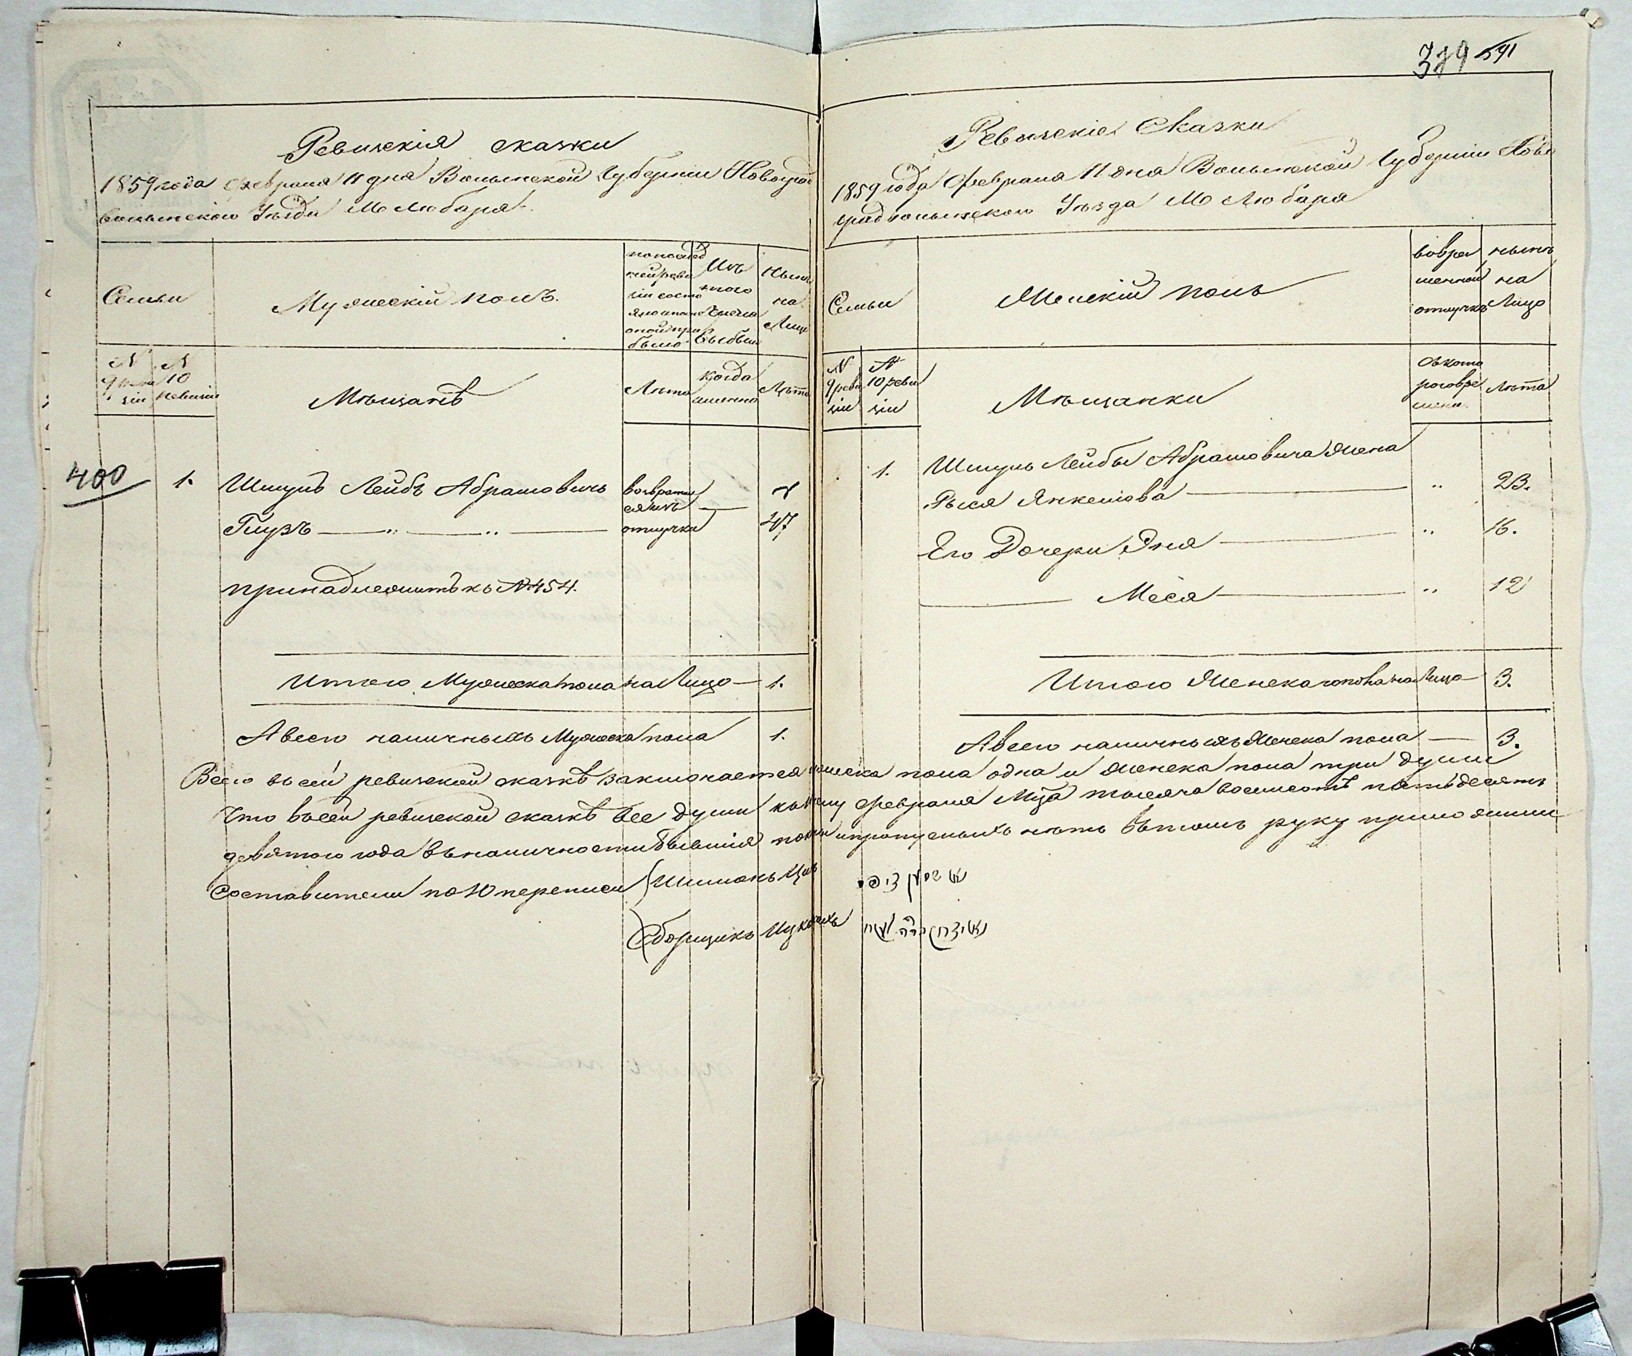 379 591
Ревизскія сказки
1859 года Февраля 11 дня Волынской Губерніи Новоград
волынскаго Уѣзда М. Любаря
Семьи
Мужескій полъ.
по послед
ней реви
зіи состо
было
Изъ
того
числа
выбыло
Нынѣ
на
Лицо
N
9 реви
зіи
N
10
Ревизіи
Мѣщанѣ
Лѣта
когда
именно
Лѣта
400
1.
Шмуль Лейбъ Абрамовичь
возврати
Глузъ
отлучки
47
принадлежитъ къ № 454.
Итого Мужеска пола на Лицо 1.
А всего наличныхъ Мужеска пола 1.
Ревизскіе Сказки
1859 года Февраля 11 дня Волынской Губерніи Ново
градволынскаго Уѣзда М. Любаря
Семьи
Женскій полъ
вовре
менной
отлучкѣ
нынѣ
на
Лицо
N
9 реви
зіи
N
10 реви
зіи
Мѣщанки
съ кото
раговре
мени
Лѣта
1.
Шмуль Лейбы Абрамовича жена
Рыся Янкелова „ 23.
Его Дочери Эня „ 16.
Меся „ 12
Итого Женска пола на Лицо 3.
А всего наличныхъ Женска пола 3.
Всего въ сей ревизской сказкѣ заключается мужеска пола одна и женска пола три души
Что въ сей ревизской сказкѣ все души къ Февраля М-ца тысяча восемьсотъ пятьдесятъ
девятого года въ наличности бывшія и пропускныхъ нѣтъ въ томъ руку приложили
Составители по 10 переписи Шимонъ
Сборщикъ